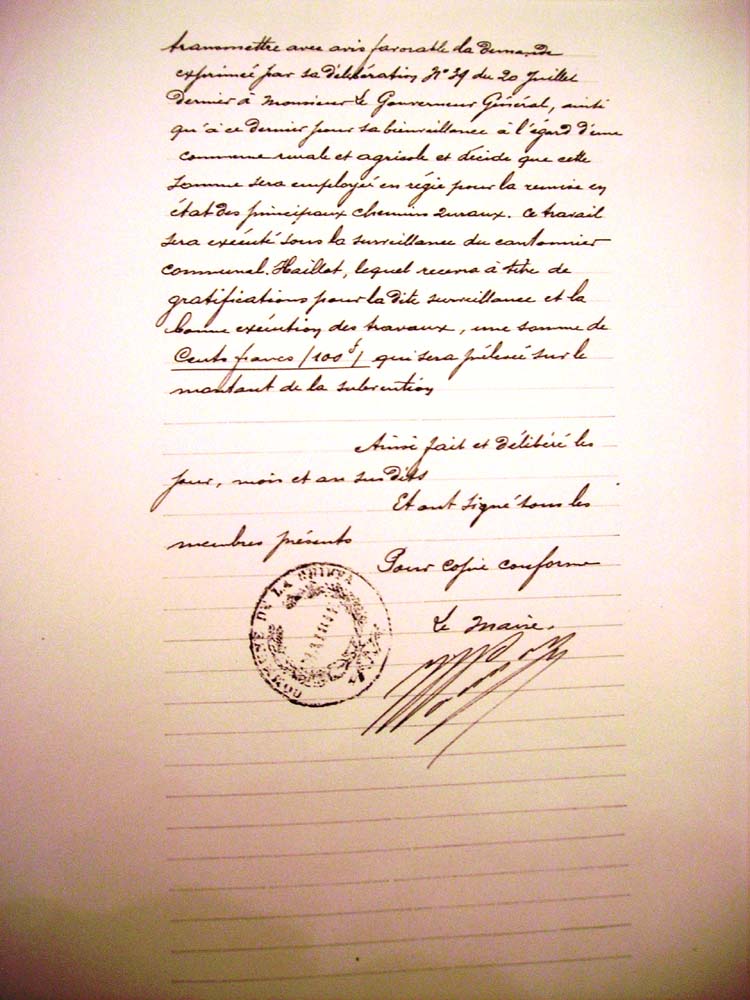 transmettre avec avis favorable la demande
exprimée par sa délibération N° 39 du 20 Juillet
dernier à Monsieur Le Gouverneur Général, ainsi
qu'à ce dernier pour sa bienveillance à l'égard d'une
commune rurale et agricole et décide que cette
somme sera employée en régie pour la remise en
état des principaux chemins ruraux. Ce travail
sera exécuté sous la surveillance du cantonnier
communal. Haillot, lequel recevra à titre de
gratifications pour la dite surveillance et la
bonne exécution des travaux, une somme de
Cents francs (100 f) qui sera prélevée sur le
montant de la subvention
Ainsi fait et délibéré les
jour, mois et an sus dits
Et ont signé tous les
membres présents
Pour copie conforme
Le Maire.
COMMUNE DE LA CHIFFA
MAIRIE